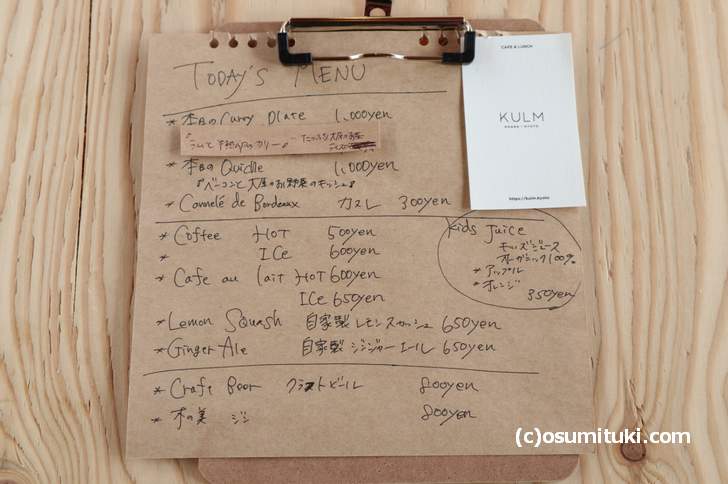 TODAY'S MENU
* 本日の Curry Plate 1,000yen
* 本日の Quidle 1,000yen
『ベーコンと大原のお野菜のキッシュ』
* Cannelé de Bordeaux カヌレ 300yen
* Coffee HOT 500yen
* ICe 600yen
* Cafe au lait HOT 600yen
ICe 650yen
* Lemon Squash 自家製 レモンスカッシュ 650yen
* Ginger Ale 自家製 ジンジャーエール 650yen
* Craft Beer クラフトビール 800yen
* 木の美 ジン 800yen
kids Juice
キッズジュース
オーガニック100%
* アップル
* オレンジ
350yen
CAFE & LUNCH
KULM
OHARA · KYOTO
https://kulm.kyoto
(c)osumituki.com